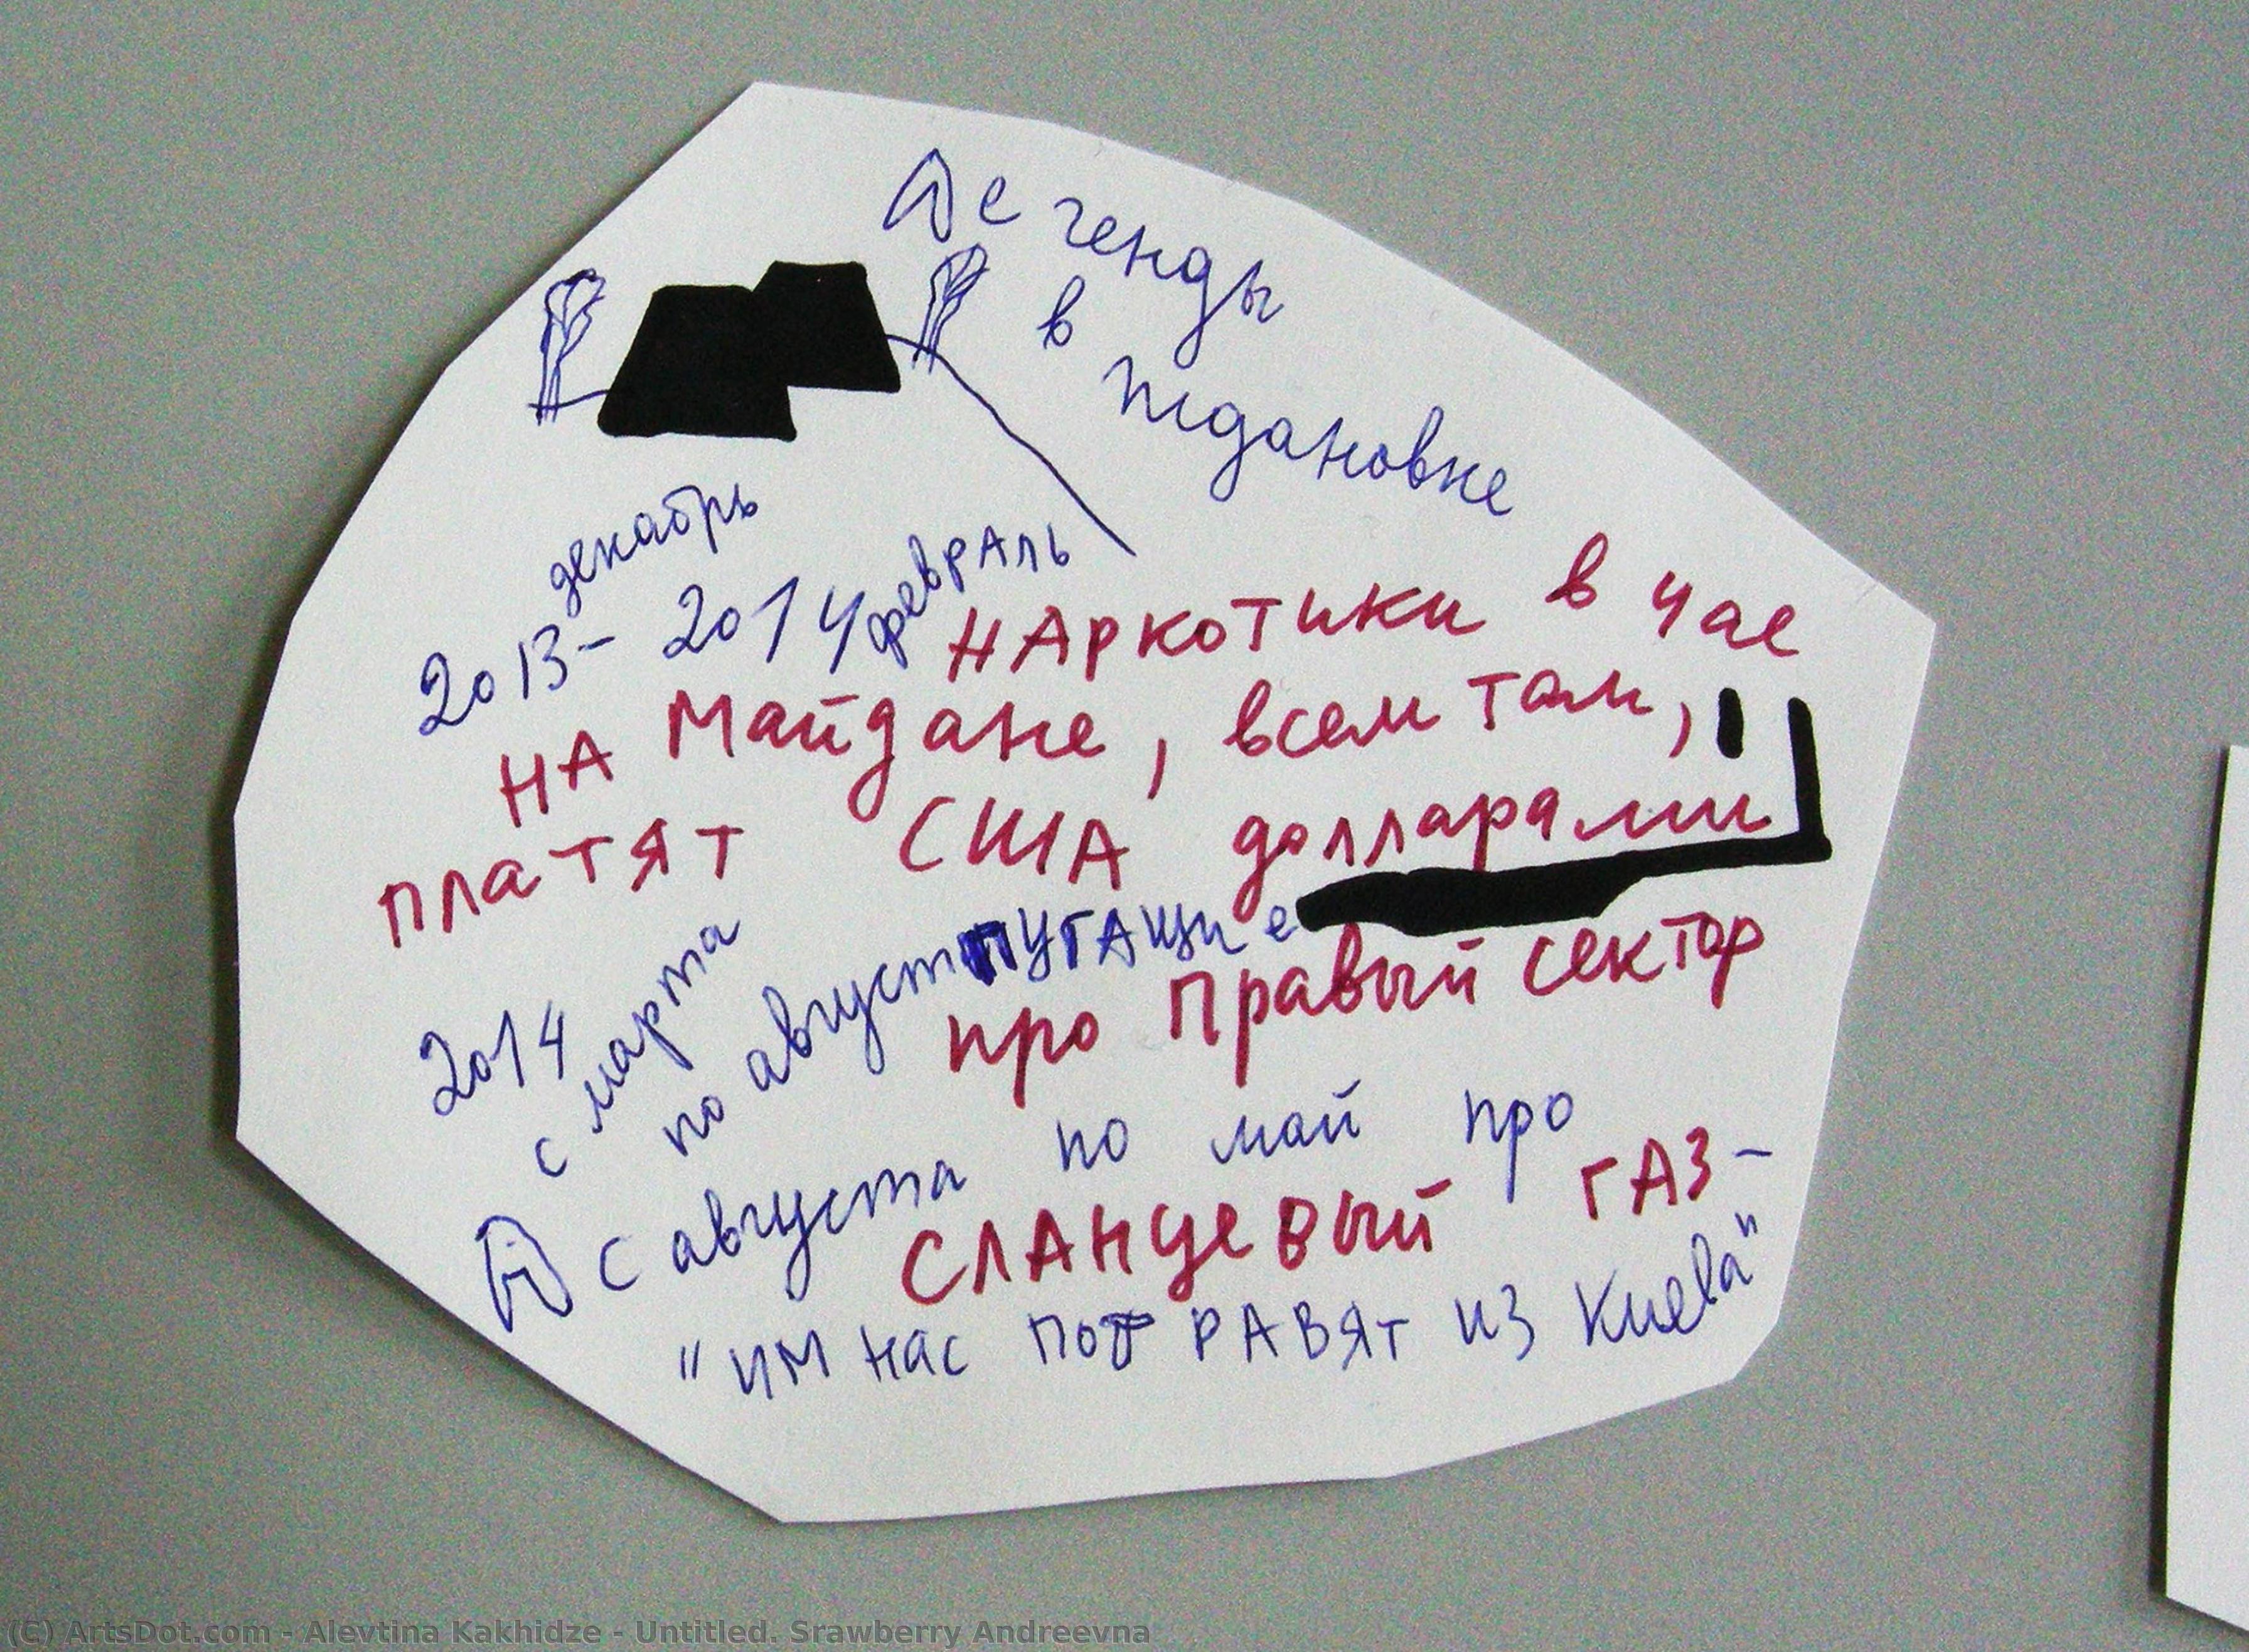 Легенды
в Ждановке
декабрь
2013 - 2014 февраль
наркотики в чае
на Майдане, всем там,
платят США долларами
2014
с марта
по август пугащие
про Правый сектор
с августа по май про
сланцевый газ -
"им нас потравят из Киева"
(C) ArtsDot.com - Alevtina Kakhidze - Untitled. Srawberry Andreevna